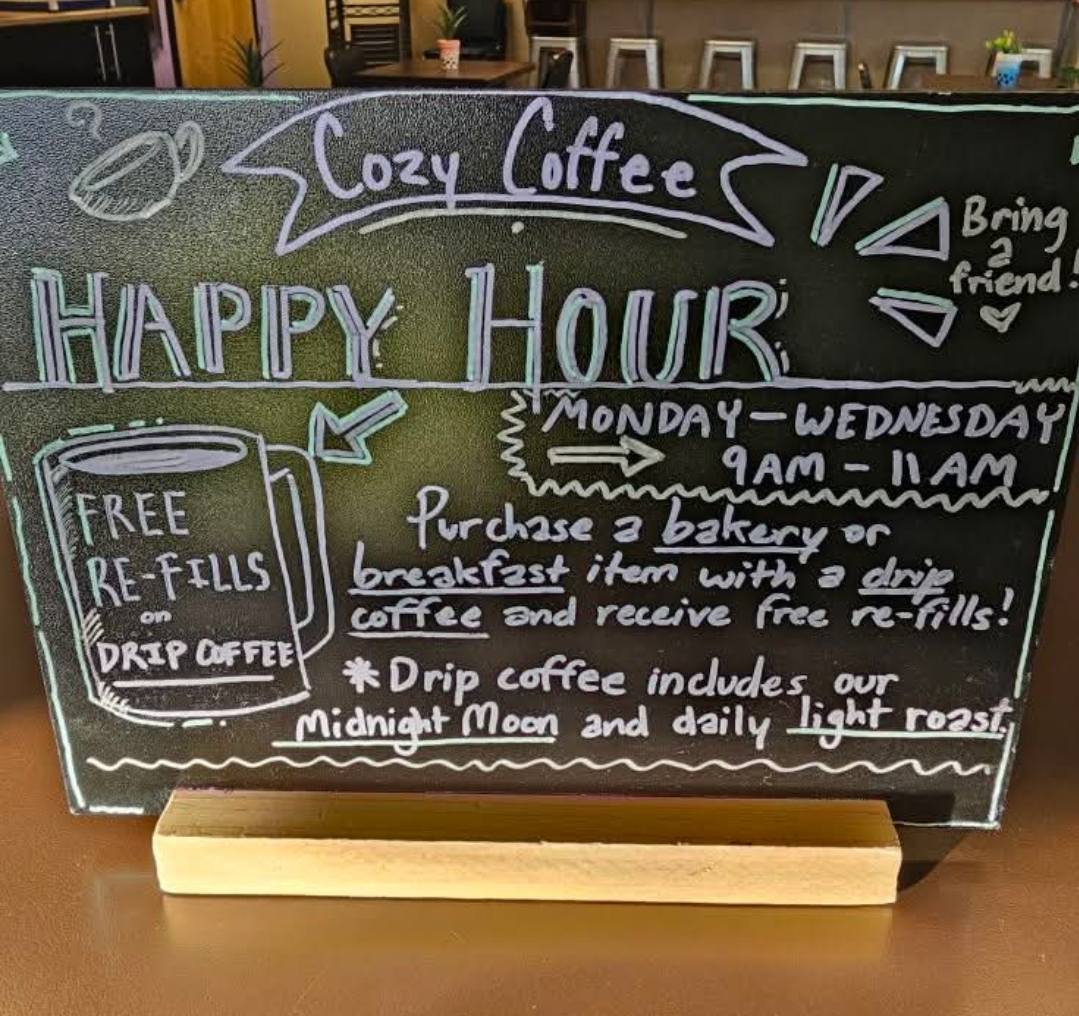 Cozy Coffee
Bring
a
friend!
HAPPY HOUR
MONDAY - WEDNESDAY
9AM - 11AM
FREE
RE-FILLS
on
DRIP COFFEE
Purchase a bakery or
breakfast item with a drip
coffee and receive free re-fills!
*Drip coffee includes our
Midnight Moon and daily light roast.